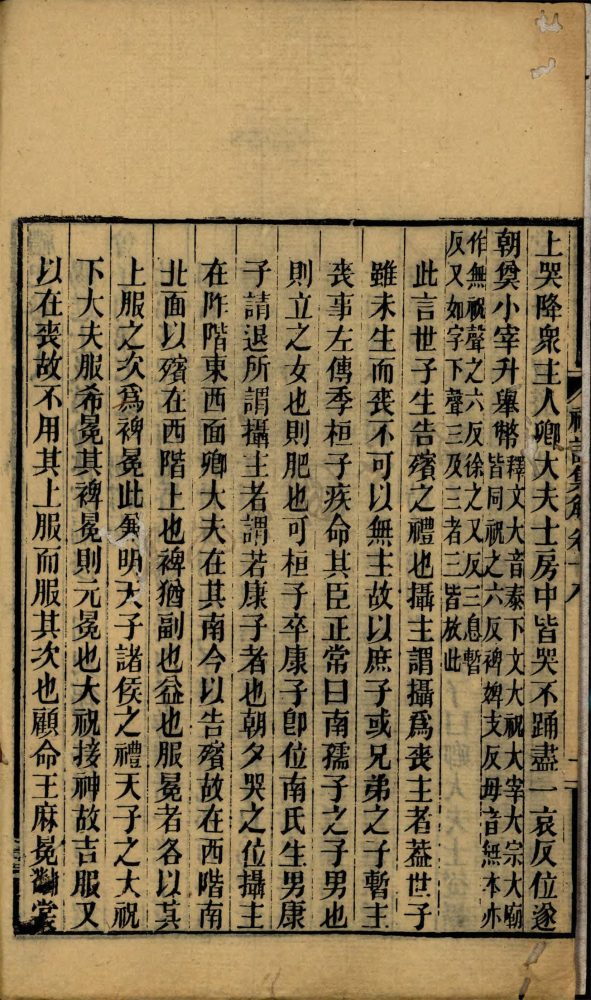 上哭降衆主人卿大夫士房中皆哭不踊盡一哀反位遂
朝奠小宰升舉幣釋文大音泰下文大祝大宰大宗大廟
皆同祝之六反裨婢支反毋音無本亦
作無祝聲之六反徐之又反三息暫
反又如字下聲三及三者三皆放此
此言世子生告殯之禮也攝主謂攝爲喪主者葢世子
雖未生而喪不可以無主故以庶子或兄弟之子暫主
喪事左傳季桓子疾命其臣正常曰南孺子之子男也
則立之女也則肥也可桓子卒康子卽位南氏生男康
子請退所謂攝主者謂若康子者也朝夕哭之位攝主
在阼階東西面卿大夫在其南今以告殯故在西階南
北面以殯在西階上也裨猶副也益也服冕者各以其
上服之次爲裨冕此兼明天子諸侯之禮天子之大祝
下大夫服希冕其裨冕則元冕也大祝接神故吉服又
以在喪故不用其上服而服其次也顧命王麻冕黼裳
禮記集解卷十八